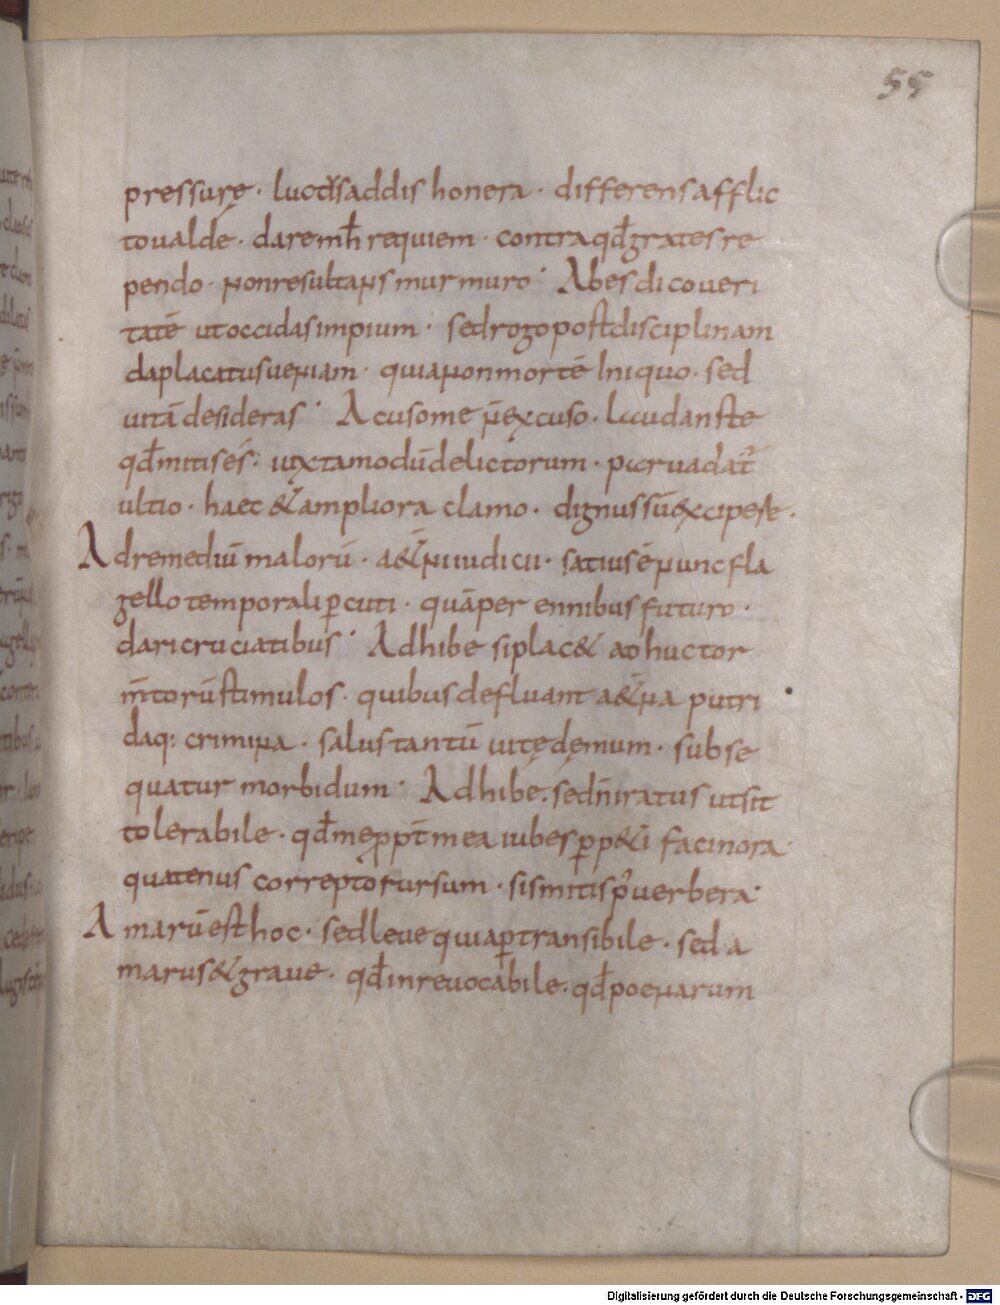 55
pressurę · luctusaddis honera · differens afflic
to ualde · dare mh̄ requiem · contra qđ grates re
pendo · non resultans murmuro · Abes dico ueri
tatē ut occidas impium · sed rogo post disciplinam
da placatus ueniam · quia non mortē Iniquo · sed
uitā desideras · Acuso me n̄ excuso · laudans te
qđ mitis es · iuxta modū delictorum · paruadat̄
ultio · haec & ampliora clamo · dignus sū excipe ste ·
Ad remediū malorū · a&ni iudicii · satius ē nunc fla
gello temporali ꝑcuti · quā perennibus futuro ·
dari cruciatibus · Adhibe si placc& adhuc tor
m̄torū stimulos · quibus defluant a&na putri
daq: crimina · salus tantū uitę dęmum · subse
quatur morbidum · Adhibe · sed n̄ iratus ut sit
tolerabile · qđ me ꝓpt̄ mea iubes ꝑp&i facinora
quatenus correpto rursum · sis mitis p̊ uerbera ·
Amarū est hoc · sed leue quia ꝑtransibile · sed a
marus & graue · qđ inreuocabile · qđ poenarum
Digitalisierung gefördert durch die Deutsche Forschungsgemeinschaft - DFG